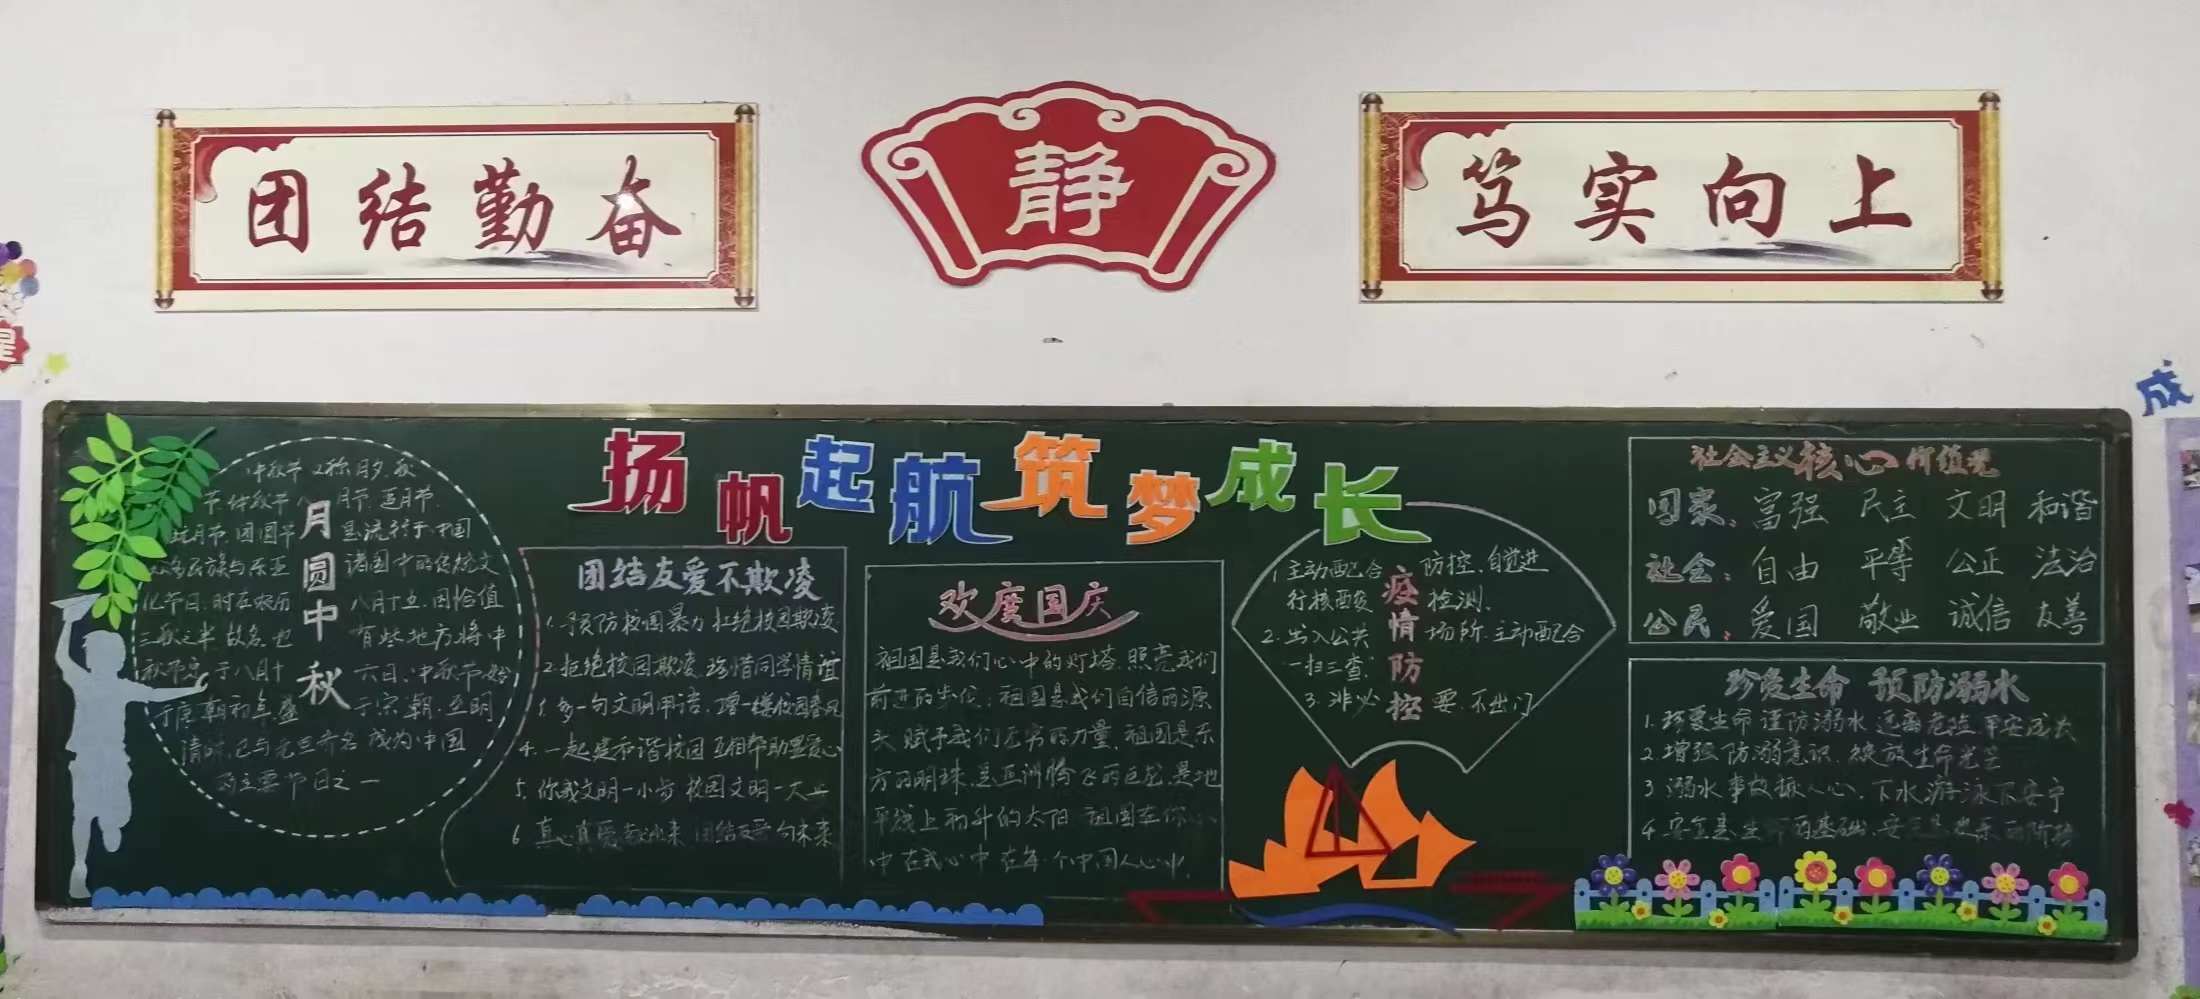 团结勤奋
静
笃实向上
成
扬帆起航筑梦成长
月圆中秋
中秋节 又称月夕、秋
节、仲秋节、八月节、追月节、
月节、团圆节 是流行于中国
众多民族与东亚 诸国中的传统文
化节日,时在农历 八月十五,因恰值
三秋之半,故名,也 有些地方将中
秋节定于八月十六日,中秋节始
于唐朝初年,盛 于宋朝,至明
清时,已与元旦齐名 成为中国
的主要节日之一
团结友爱不欺凌
1.预防校园暴力 拒绝校园欺凌
2.拒绝校园欺凌,珍惜同学情谊
多一句文明用语,增一缕校园春风
4.一起建和谐校园 互相帮助显爱心
5.你我文明一小步 校园文明一大
6 真心真爱 团结友爱向未来
欢度国庆
祖国是我们心中的灯塔,照亮我们
前进的步伐;祖国是我们自信的源
头,赋予我们无穷的力量,祖国是东
方的明珠,是亚洲腾飞的巨龙,是地
平线上初升的太阳 祖国在你
中 在我心中 在每个中国人心中
疫情防控
1.主动配合 防控,自觉进
行核酸 检测,
2.出入公共 场所,主动配合
一扫三查,
3.非必 要,不出门
社会主义核心价值观
国家:富强 民主 文明 和谐
社会:自由 平等 公正 法治
公民:爱国 敬业 诚信 友善
珍爱生命 预防溺水
1.珍爱生命 谨防溺水 远离危险 平安成长
2.增强防溺意识,绽放生命光芒
3 溺水事故揪人心,下水游泳不安宁
4.安全是生命的基础,安全是